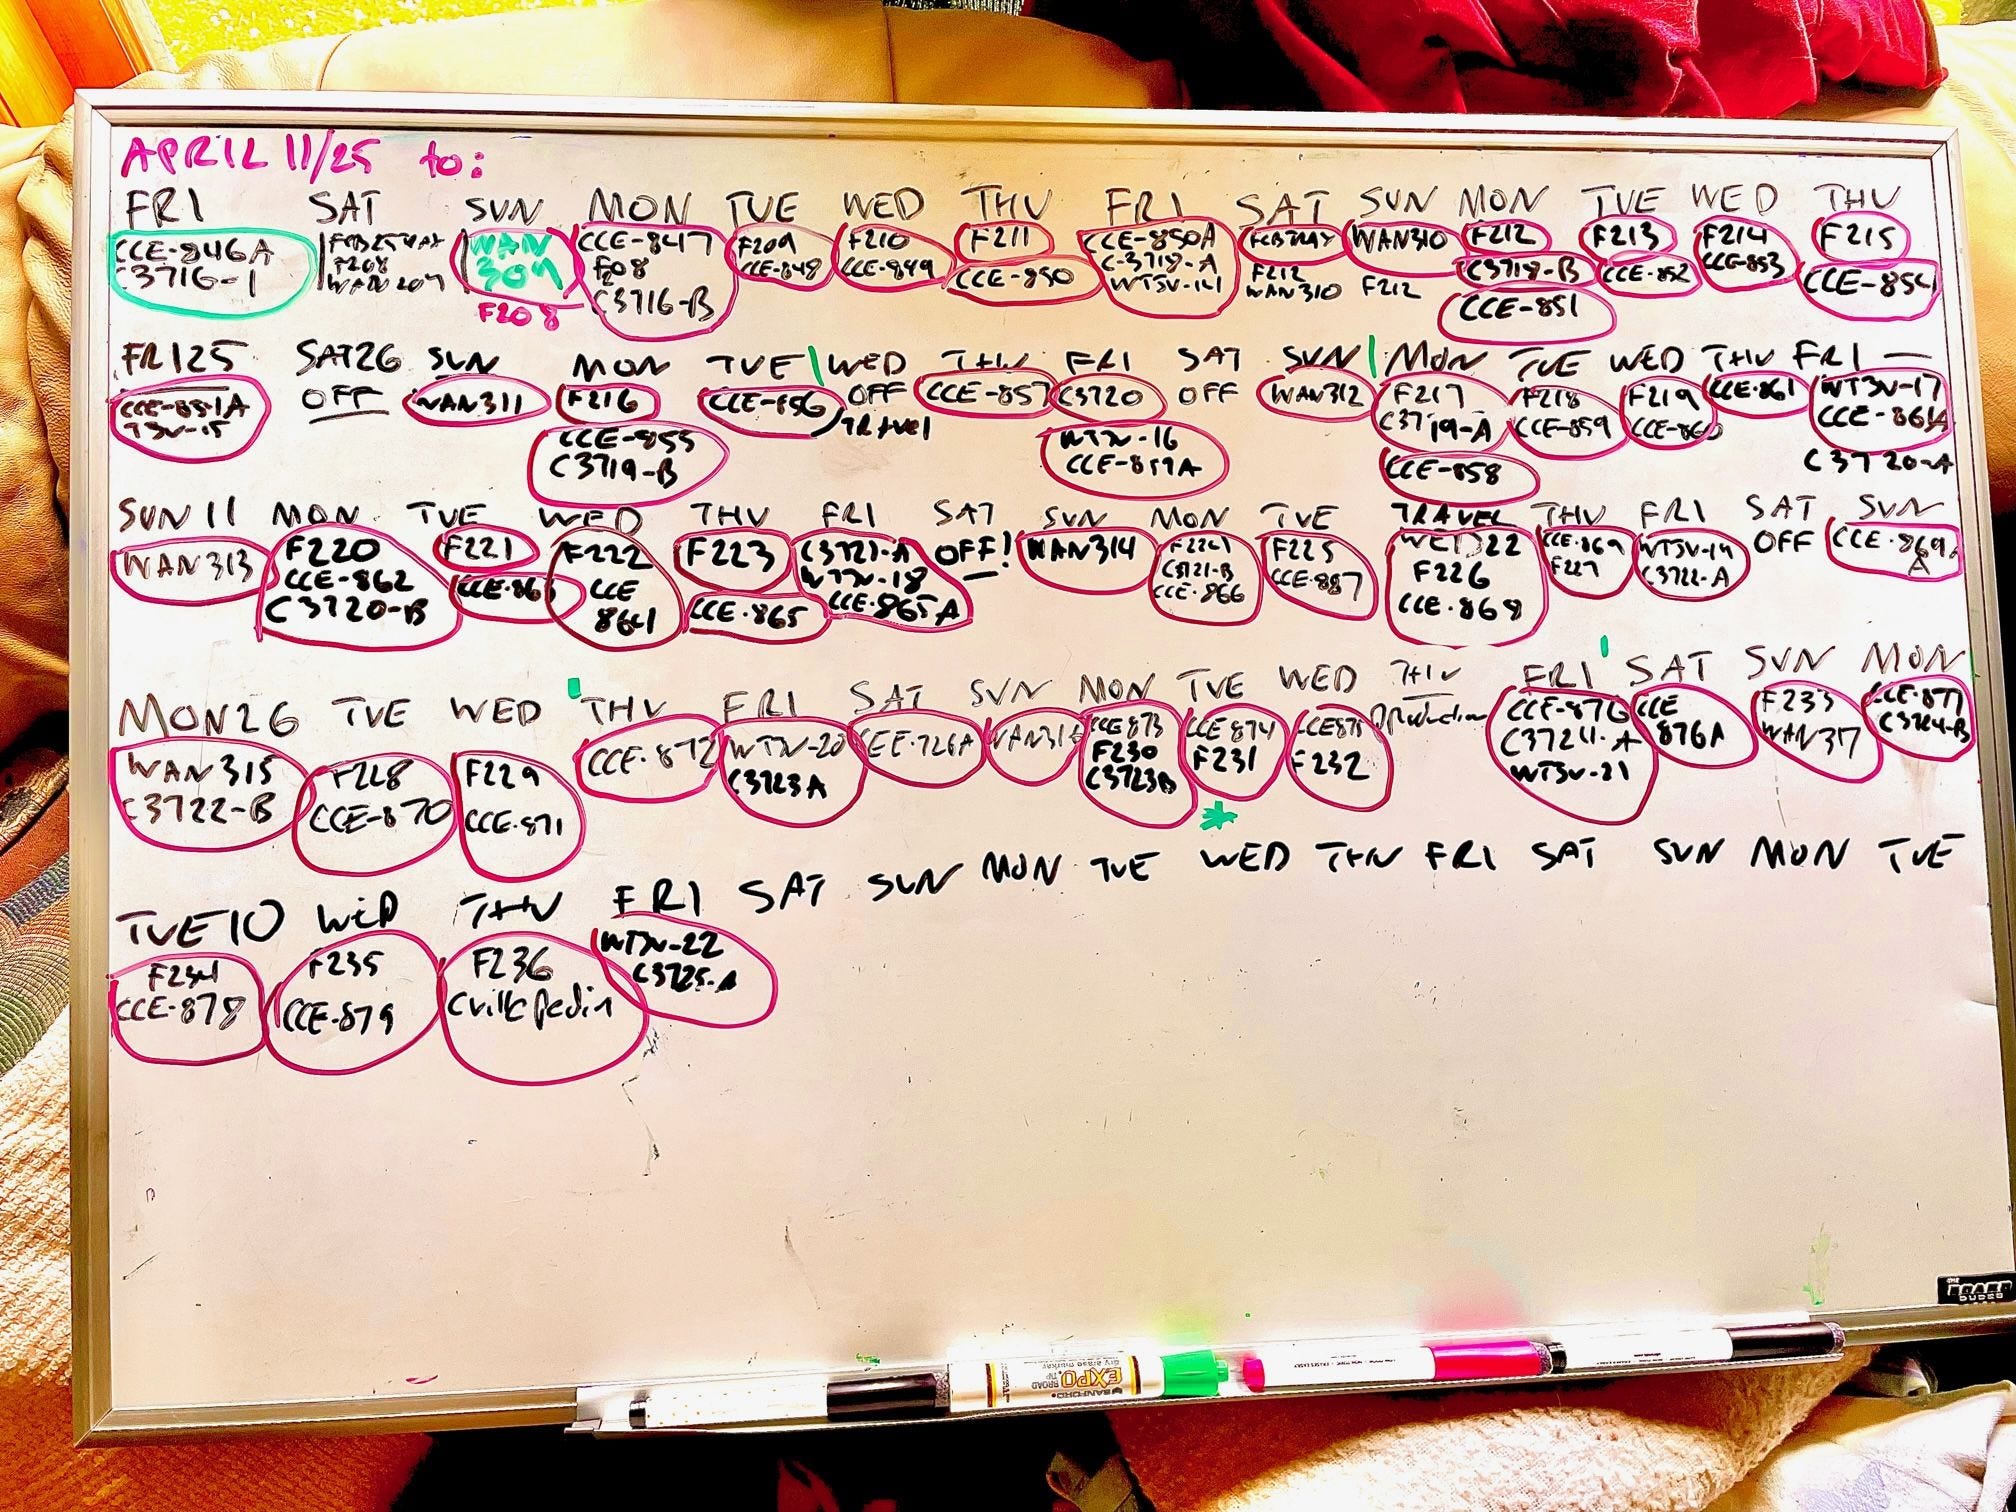 APRIL 11/25 to:
FRI SAT SUN MON TUE WED THU FRI SAT SUN MON TUE WED THU
CCE-846A F208 WAN CCE-847 F209 F210 F211 CCE-850A WAN310 F212 F213 F214 F215
C3716-1 F208 C3716-B CCE-848 CCE-849 CCE-850 C-3718-A F212 WAN310 F212 C3718-B CCE-852 CCE-853 CCE-854
CCE-851
FRI 25 SAT26 SUN MON TUE WED THU FRI SAT SUN MON TUE WED THU FRI —
OFF WAN311 F216 CCE-856 OFF CCE-857 C3720 OFF WAN312 F217 F218 F219 CCE-861 WTJU-17
TRAVEL C3719-A CCE-859 CCE-860 CCE-861A
CCE-855 WTJU-16 CCE-858 C3720-A
C3719-B CCE-857A
SUN 11 MON TUE WED THU FRI SAT SUN MON TUE TRAVEL THU FRI SAT SUN
WAN313 F220 F221 F222 F223 C3721-A OFF! WAN314 WED 22 CCE-869 OFF CCE-869A
CCE-862 CCE WTJU-18 C3721-B F225 F226 F227 C3722-A
C3720-B 864 CCE-865 CCE-865A CCE-866 CCE-868
MON 26 TUE WED THU FRI SAT SUN MON TUE WED THU FRI SAT SUN MON
WAN315 F228 F229 CCE-872 WTJU-20 CCE873 CCE874 Production CCE-876 CCE CCE-877
C3722-B CCE-870 CCE-871 C3723A F230 F231 F232 C3724-A 876A C3724-B
C3723B WTJU-21
SAT SUN MON TUE WED THU FRI SAT SUN MON TUE
TUE 10 WED THU FRI
F234 F235 F236 WTJU-22
CCE-878 CCE-879 Cvillepedia C3725-A
EXPO